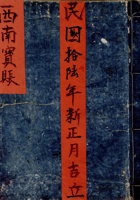 民國拾陸年新正月吉立
西南實賬